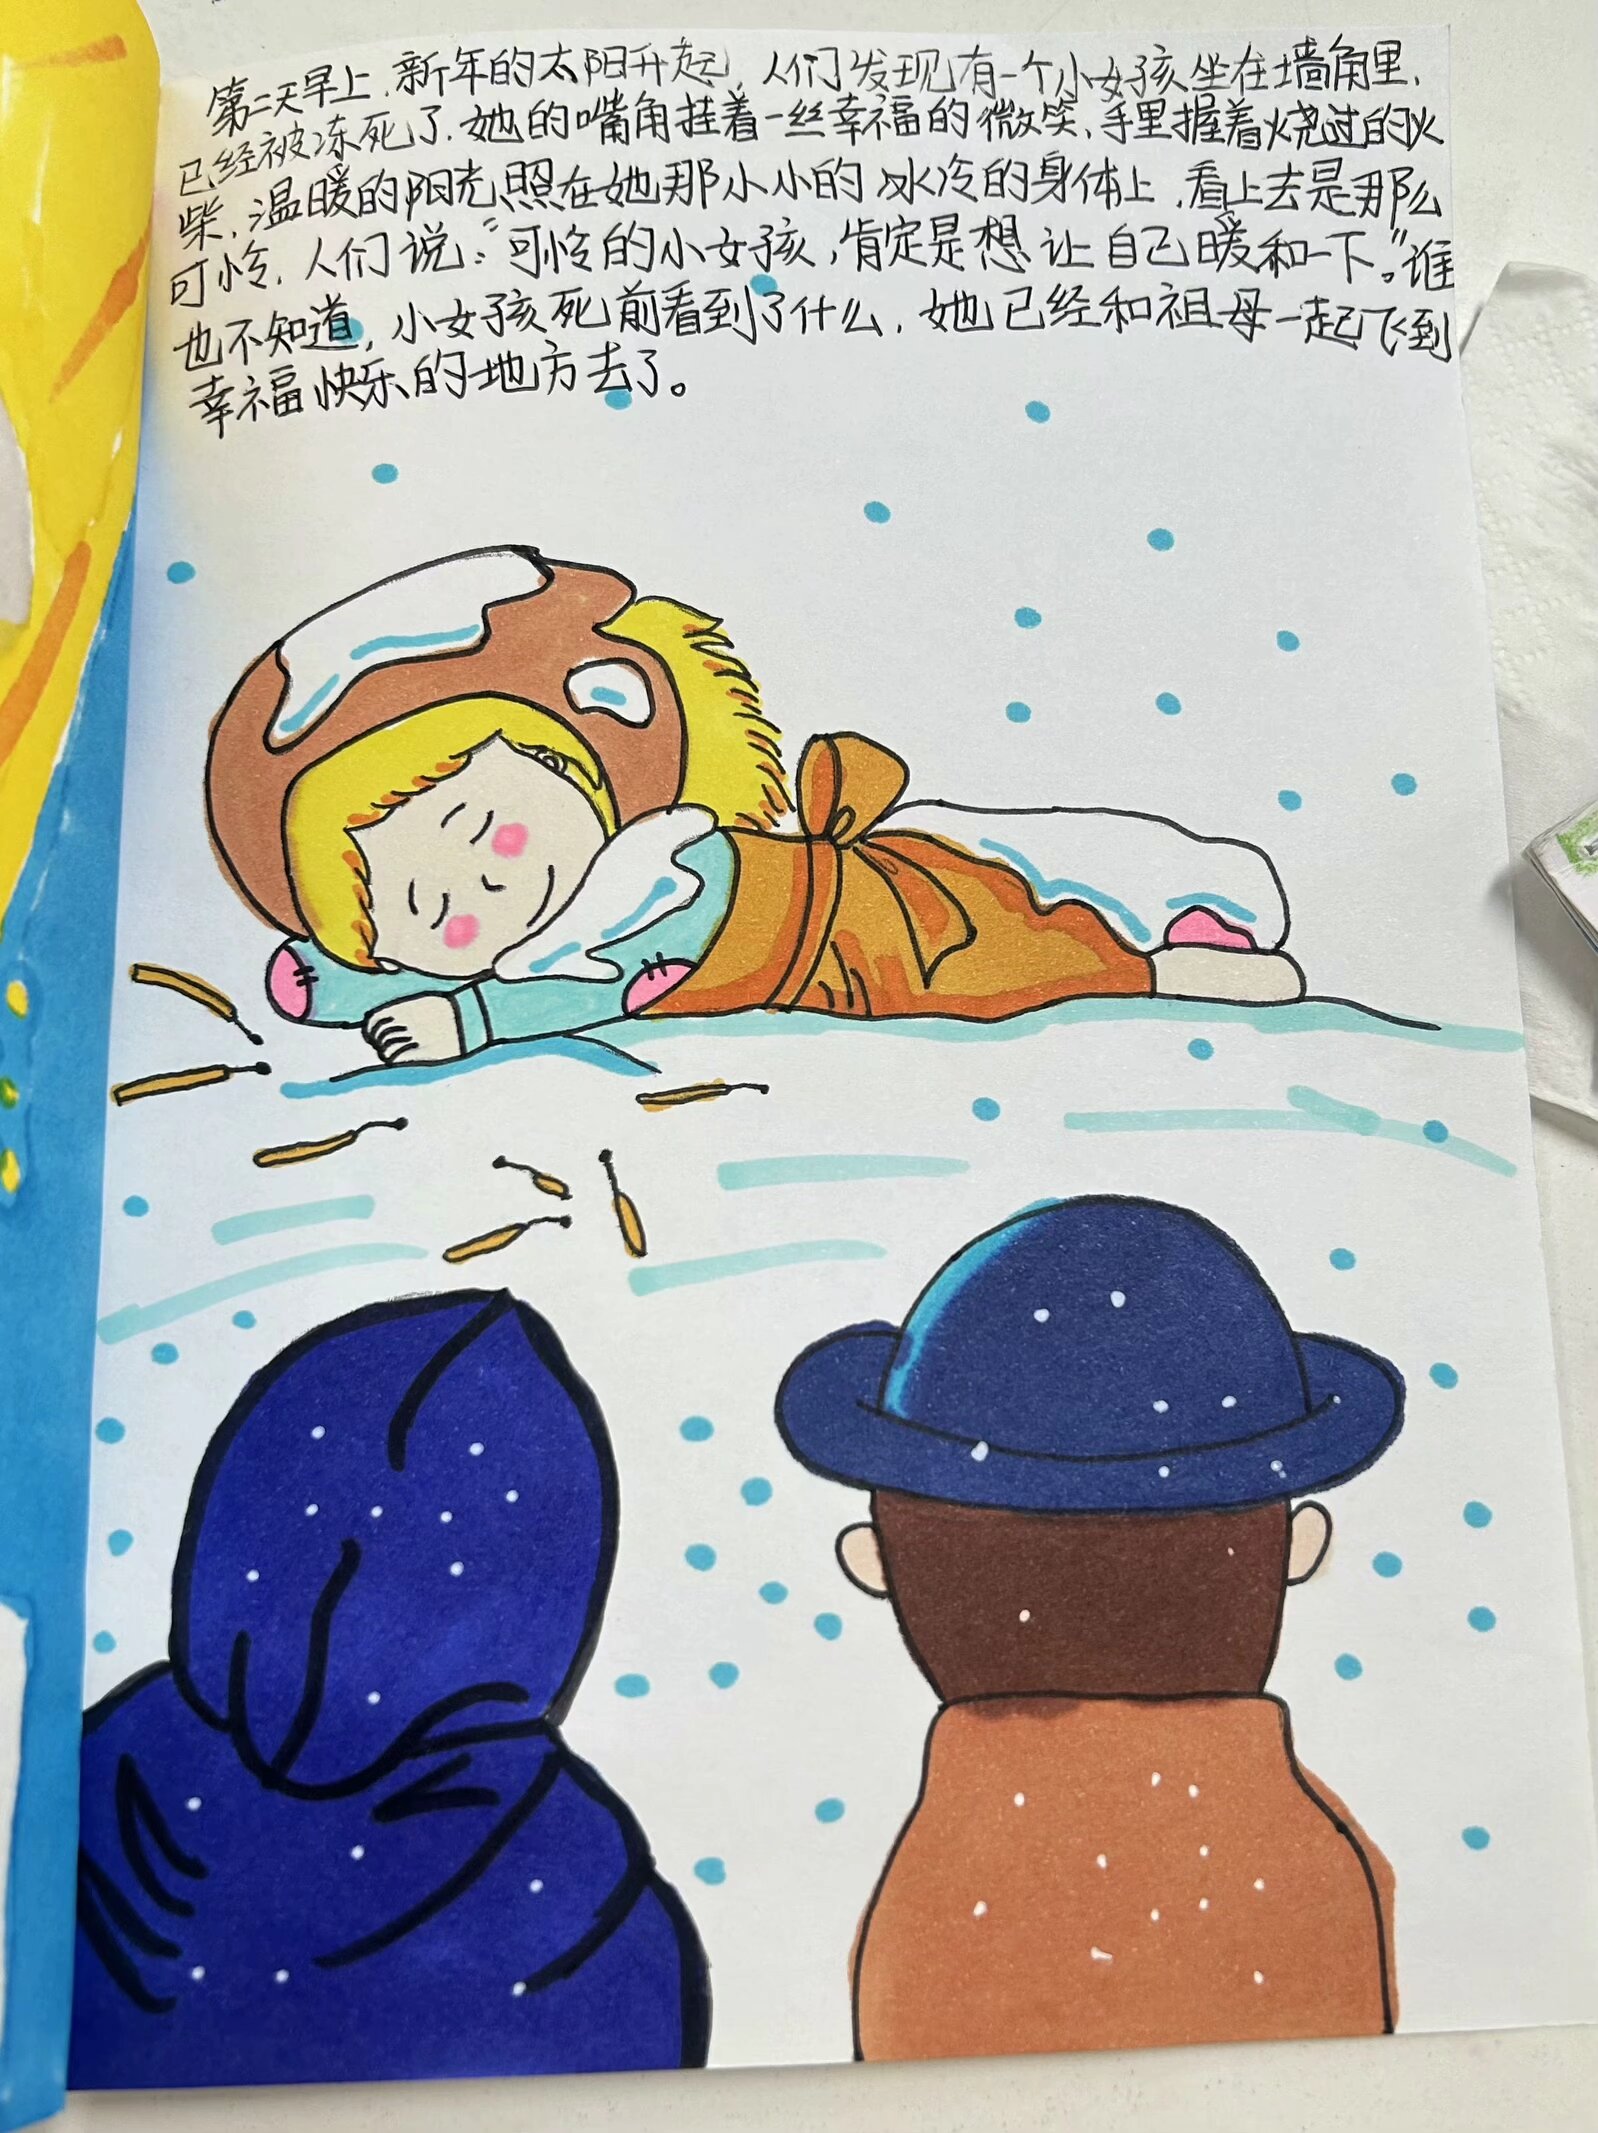 第二天早上,新年的太阳升起,人们发现有一个小女孩坐在墙角里,
已经被冻死了.她的嘴角挂着一丝幸福的微笑、手里握着火烧过的火
柴,温暖的阳光照在她那小小的冰冷的身体上,看上去是那么
可怜.人们说:“可怜的小女孩,肯定是想让自己暖和一下。”谁
也不知道,小女孩死前看到了什么,她已经和祖母一起飞到
幸福快乐的地方去了。